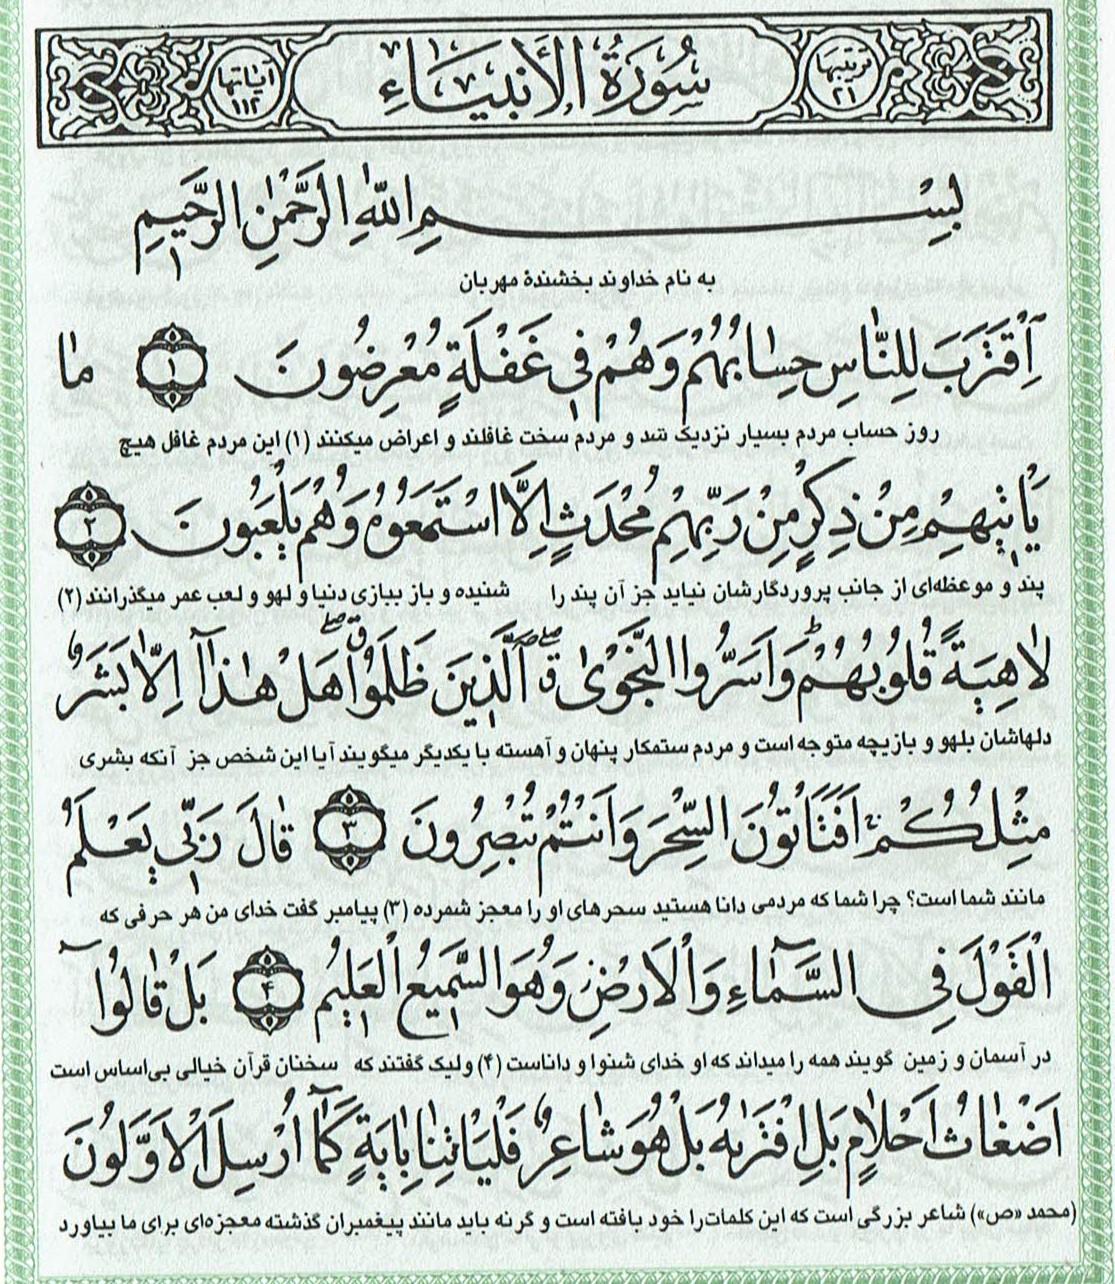 ترتیبها ۲۱ سُورَةُ الْأَنبِيَاءِ آیاتها ۱۱۲
بِسْمِ اللّٰهِ الرَّحْمٰنِ الرَّحِيمِ
به نام خداوند بخشندهٔ مهربان
اِقْتَرَبَ لِلنّٰاسِ حِسٰابُهُمْ وَهُمْ فِي غَفْلَةٍ مُعْرِضُونَ ﴿۱﴾ مٰا
روز حساب مردم بسیار نزدیک شد و مردم سخت غافلند و اعراض میکنند (۱) این مردم غافل هیچ
يَأْتِيهِمْ مِنْ ذِكْرٍ مِنْ رَبِّهِمْ مُحْدَثٍ اِلاَّ اسْتَمَعُوهُ وَهُمْ يَلْعَبُونَ ﴿۲﴾
پند و موعظه‌ای از جانب پروردگارشان نیاید جز آن پند را شنیده و باز ببازی دنیا و لهو و لعب عمر میگذرانند (۲)
لاٰهِيَةً قُلُوبُهُمْ وَاَسَرُّوا النَّجْوَىٰ الَّذِينَ ظَلَمُوا هَلْ هٰذٰا اِلاّٰ بَشَرٌ
دلهاشان بلهو و بازیچه متوجه است و مردم ستمکار پنهان و آهسته با یکدیگر میگویند آیا این شخص جز آنکه بشری
مِثْلُكُمْ اَفَتَأْتُونَ السِّحْرَ وَاَنْتُمْ تُبْصِرُونَ ﴿۳﴾ قٰالَ رَبِّي يَعْلَمُ
مانند شما است؟ چرا شما که مردمی دانا هستید سحرهای او را معجز شمرده (۳) پیامبر گفت خدای من هر حرفی که
الْقَوْلَ فِي السَّمٰاءِ وَالْاَرْضِ وَهُوَ السَّمِيعُ الْعَلِيمُ ﴿۴﴾ بَلْ قٰالُوا
در آسمان و زمین گویند همه را میداند که او خدای شنوا و داناست (۴) ولیک گفتند که سخنان قرآن خیالی بی‌اساس است
اَضْغٰاثُ اَحْلاٰمٍ بَلِ افْتَرٰيهُ بَلْ هُوَ شٰاعِرٌ فَلْيَأْتِنٰا بِآيَةٍ كَمٰا اُرْسِلَ الْاَوَّلُونَ
(محمد «ص») شاعر بزرگی است که این کلمات را خود بافته است و گرنه باید مانند پیغمبران گذشته معجزه‌ای برای ما بیاورد